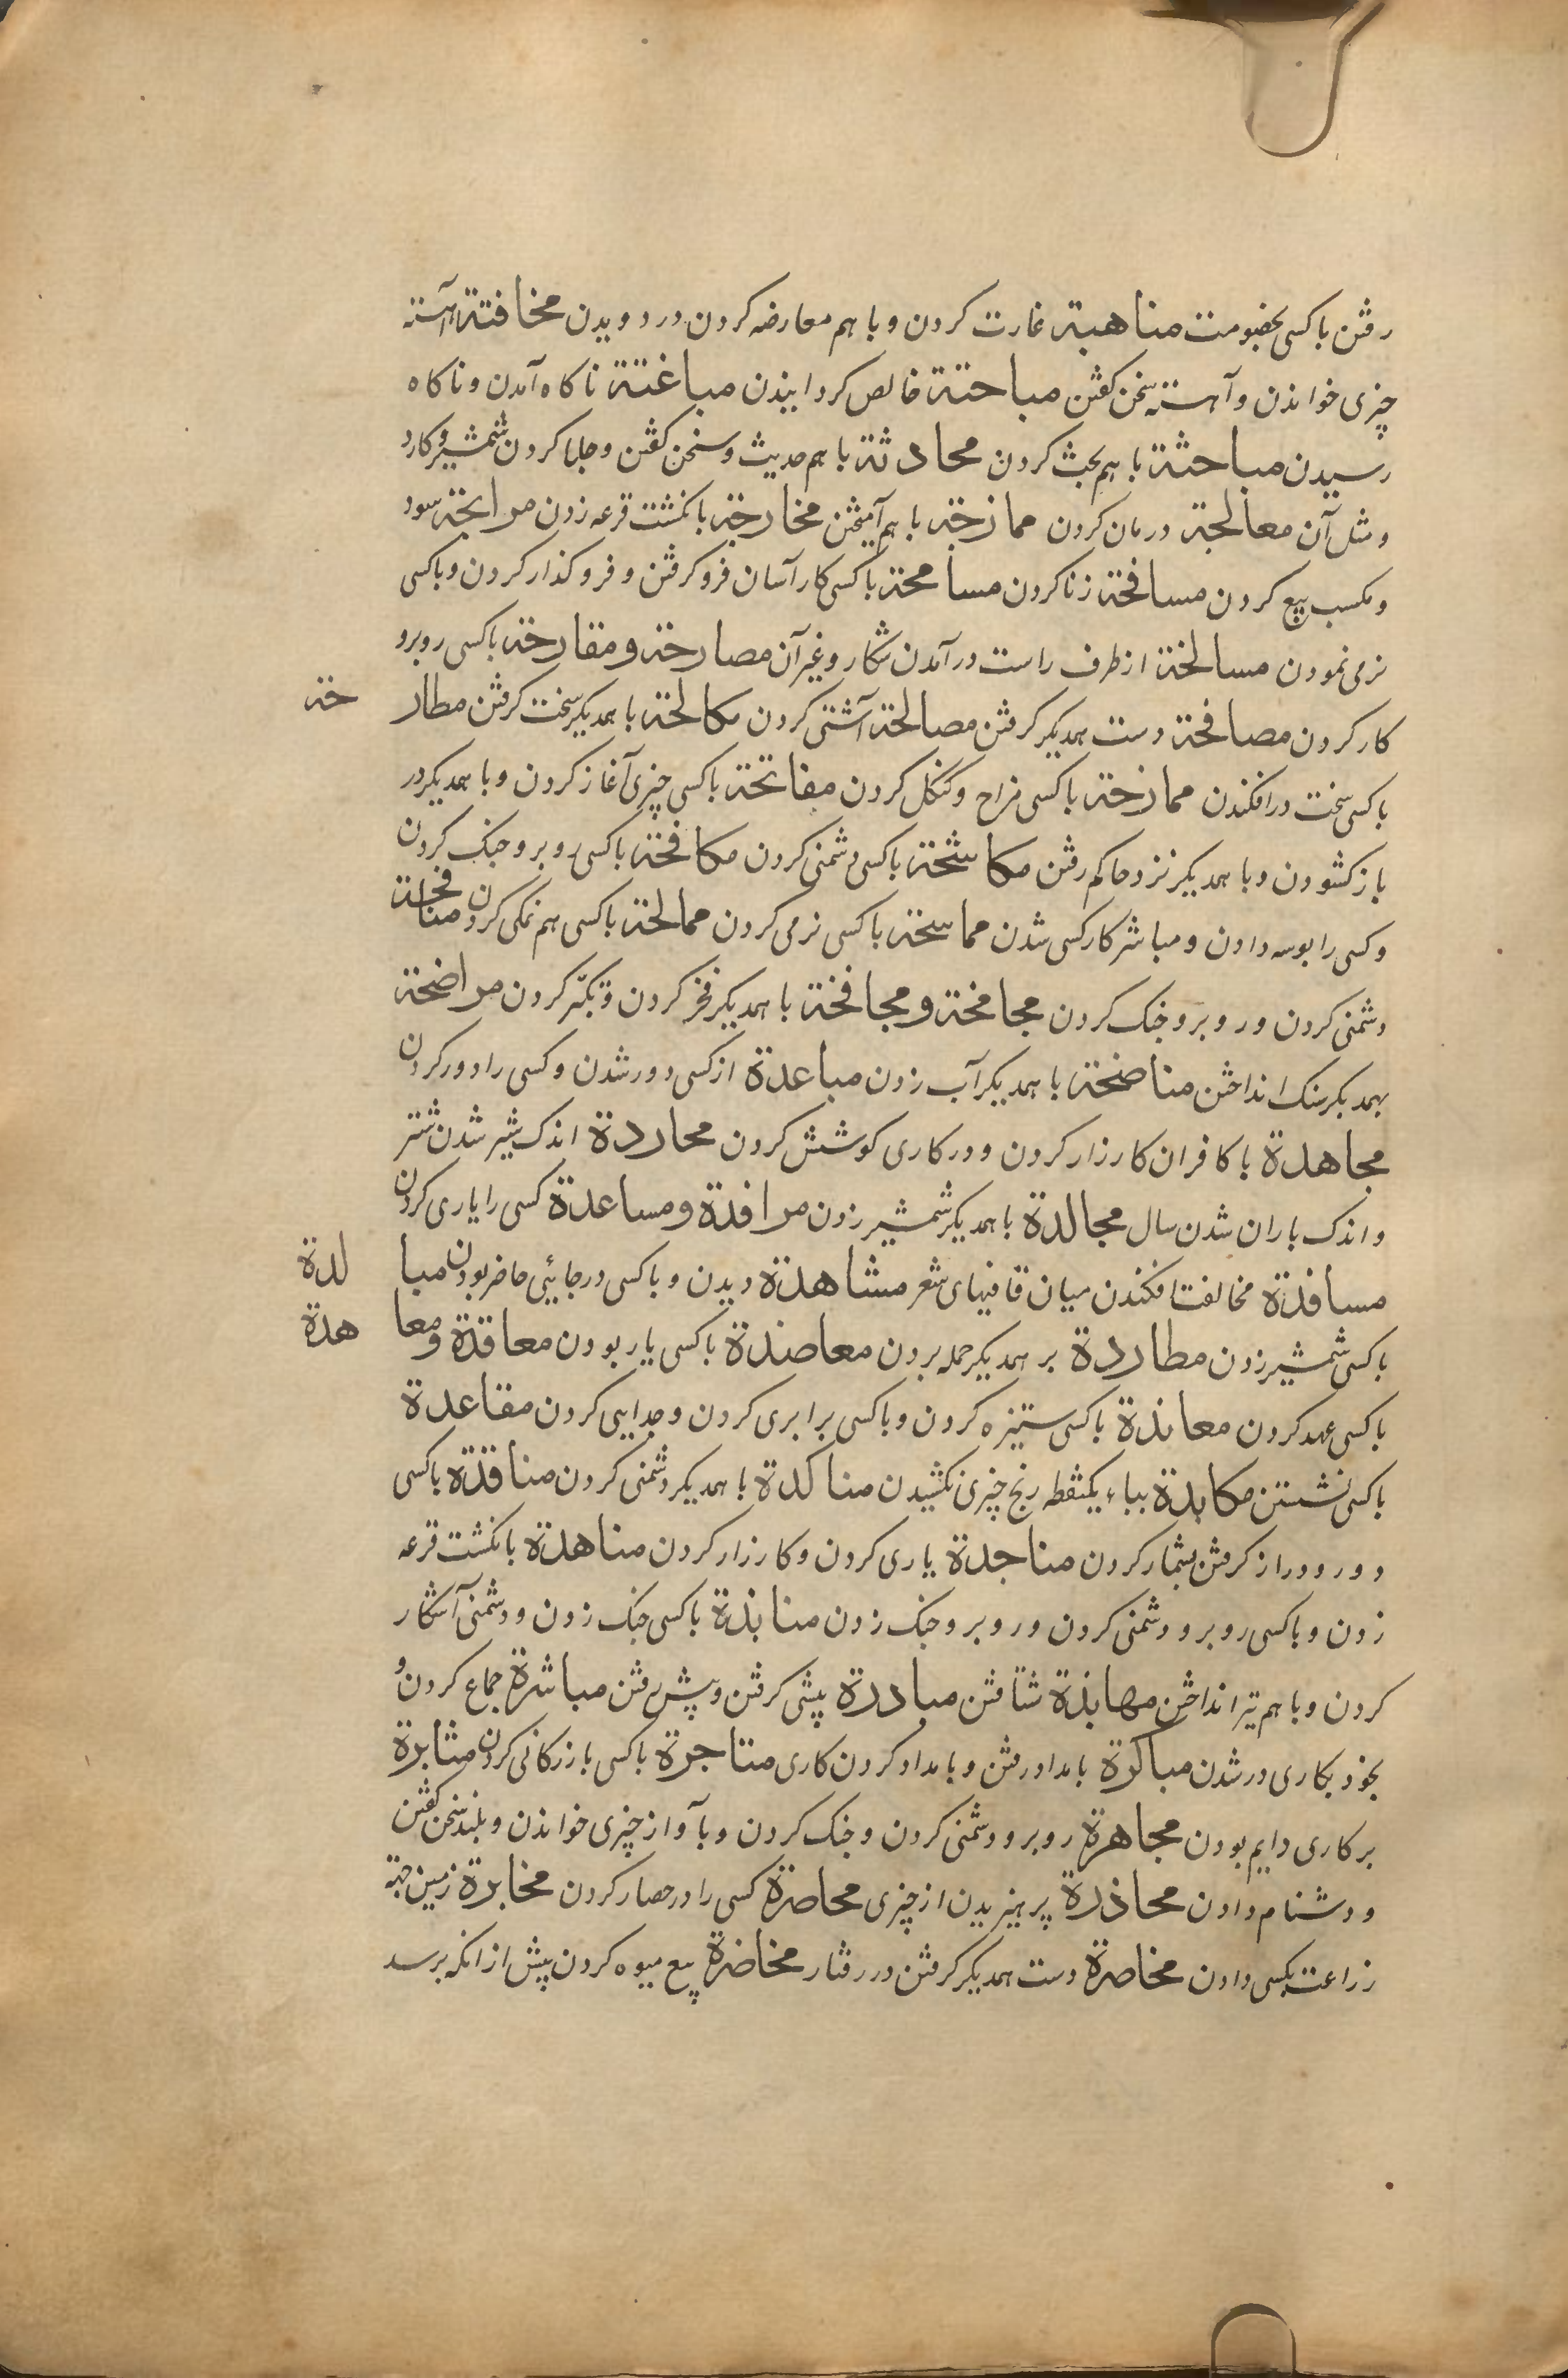 رفتن با کسی بخصومت مناهبة غارت کردن و با هم معارضه کردن در دویدن مخافتة آهسته
چیزی خواندن و آهسته سخن کفتن مباحتة خالص کردانیدن مباغتة ناکاه آمدن و ناکاه
رسیدن مباحثة با هم بحث کردن محادثة با هم حدیث و سخن کفتن و جلا کردن شمشیر و کارد
و مثل آن معالجة درمان کردن ممازجة با هم آمیختن مخارجة بانکشت قرعه زدن مرابحة سود
و مکسب بیع کردن مسافحة زنا کردن مسامحة با کسی کار آسان فرو کرفتن و فرو کذار کردن و با کسی
نرمی نمودن مسالخة از طرف راست در آمدن شکار و غیر آن مصارحة و مقارحة با کسی روبرو
کار کردن مصافحة دست همدیکر کرفتن مصالحة آشتی کردن مکالحة با همدیکر سخت کرفتن مطارحة
با کسی سخت در افکندن ممازحة با کسی مزاح و کنکل کردن مفاتحة با کسی چیزی آغاز کردن و با همدیکر در
باز کشودن و با همدیکر نزد حاکم رفتن مکاشحة با کسی دشمنی کردن مکافحة با کسی روبرو جنک کردن
و کسی را بوسه دادن و مباشر کار کسی شدن مماسحة با کسی نرمی کردن ممالحة با کسی هم نمکی کردن منافحة
دشمنی کردن و روبرو جنک کردن مجامخة و مجافخة با همدیکر فخر کردن و تکبّر کردن مراضخة
بهمدیکر سنک انداختن مناضخة با همدیکر آب زدن مباعدة از کسی دور شدن و کسی را دور کردن
مجاهدة با کافران کارزار کردن و در کاری کوشش کردن محاردة اندک شیر شدن شتر
و اندک باران شدن سال مجالدة با همدیکر شمشیر زدن مرافدة و مساعدة کسی را یاری کردن
مسافدة مخالفت افکندن میان قافیهای شعر مشاهدة دیدن و با کسی در جائی حاضر بودن مبالدة
با کسی شمشیر زدن مطاردة بر همدیکر حمله بردن معاضدة با کسی یار بودن معاقدة و معاهدة
با کسی عهد کردن معاندة با کسی ستیزه کردن و با کسی برابری کردن و جدایی کردن مقاعدة
با کسی نشستن مکابدة بباء یکنقطه رنج چیزی کشیدن مناکدة با همدیکر دشمنی کردن مناقدة با کسی
دور و دراز کرفتن بشمار کردن مناجدة یاری کردن و کارزار کردن مناهدة بانکشت قرعه
زدن و با کسی روبرو دشمنی کردن و روبرو جنک زدن منابذة با کسی جنک زدن و دشمنی آشکار
کردن و با هم تیر انداختن مهابذة شتافتن مبادرة پیشی کرفتن و پیش رفتن مباشرة جماع کردن و
بخود بکاری در شدن مباکرة بامداد رفتن و بامداد کردن کاری متاجرة با کسی بازرکانی کردن مثابرة
بر کاری دایم بودن مجاهرة روبرو دشمنی کردن و جنک کردن و بآواز چیزی خواندن و بلند سخن کفتن
و دشنام دادن محاذرة پرهیزیدن از چیزی محاصرة کسی را در حصار کردن مخابرة زمین جهة
زراعت بکسی دادن مخاصرة دست همدیکر کرفتن در رفتار مخاضرة بیع میوه کردن پیش از انکه برسد